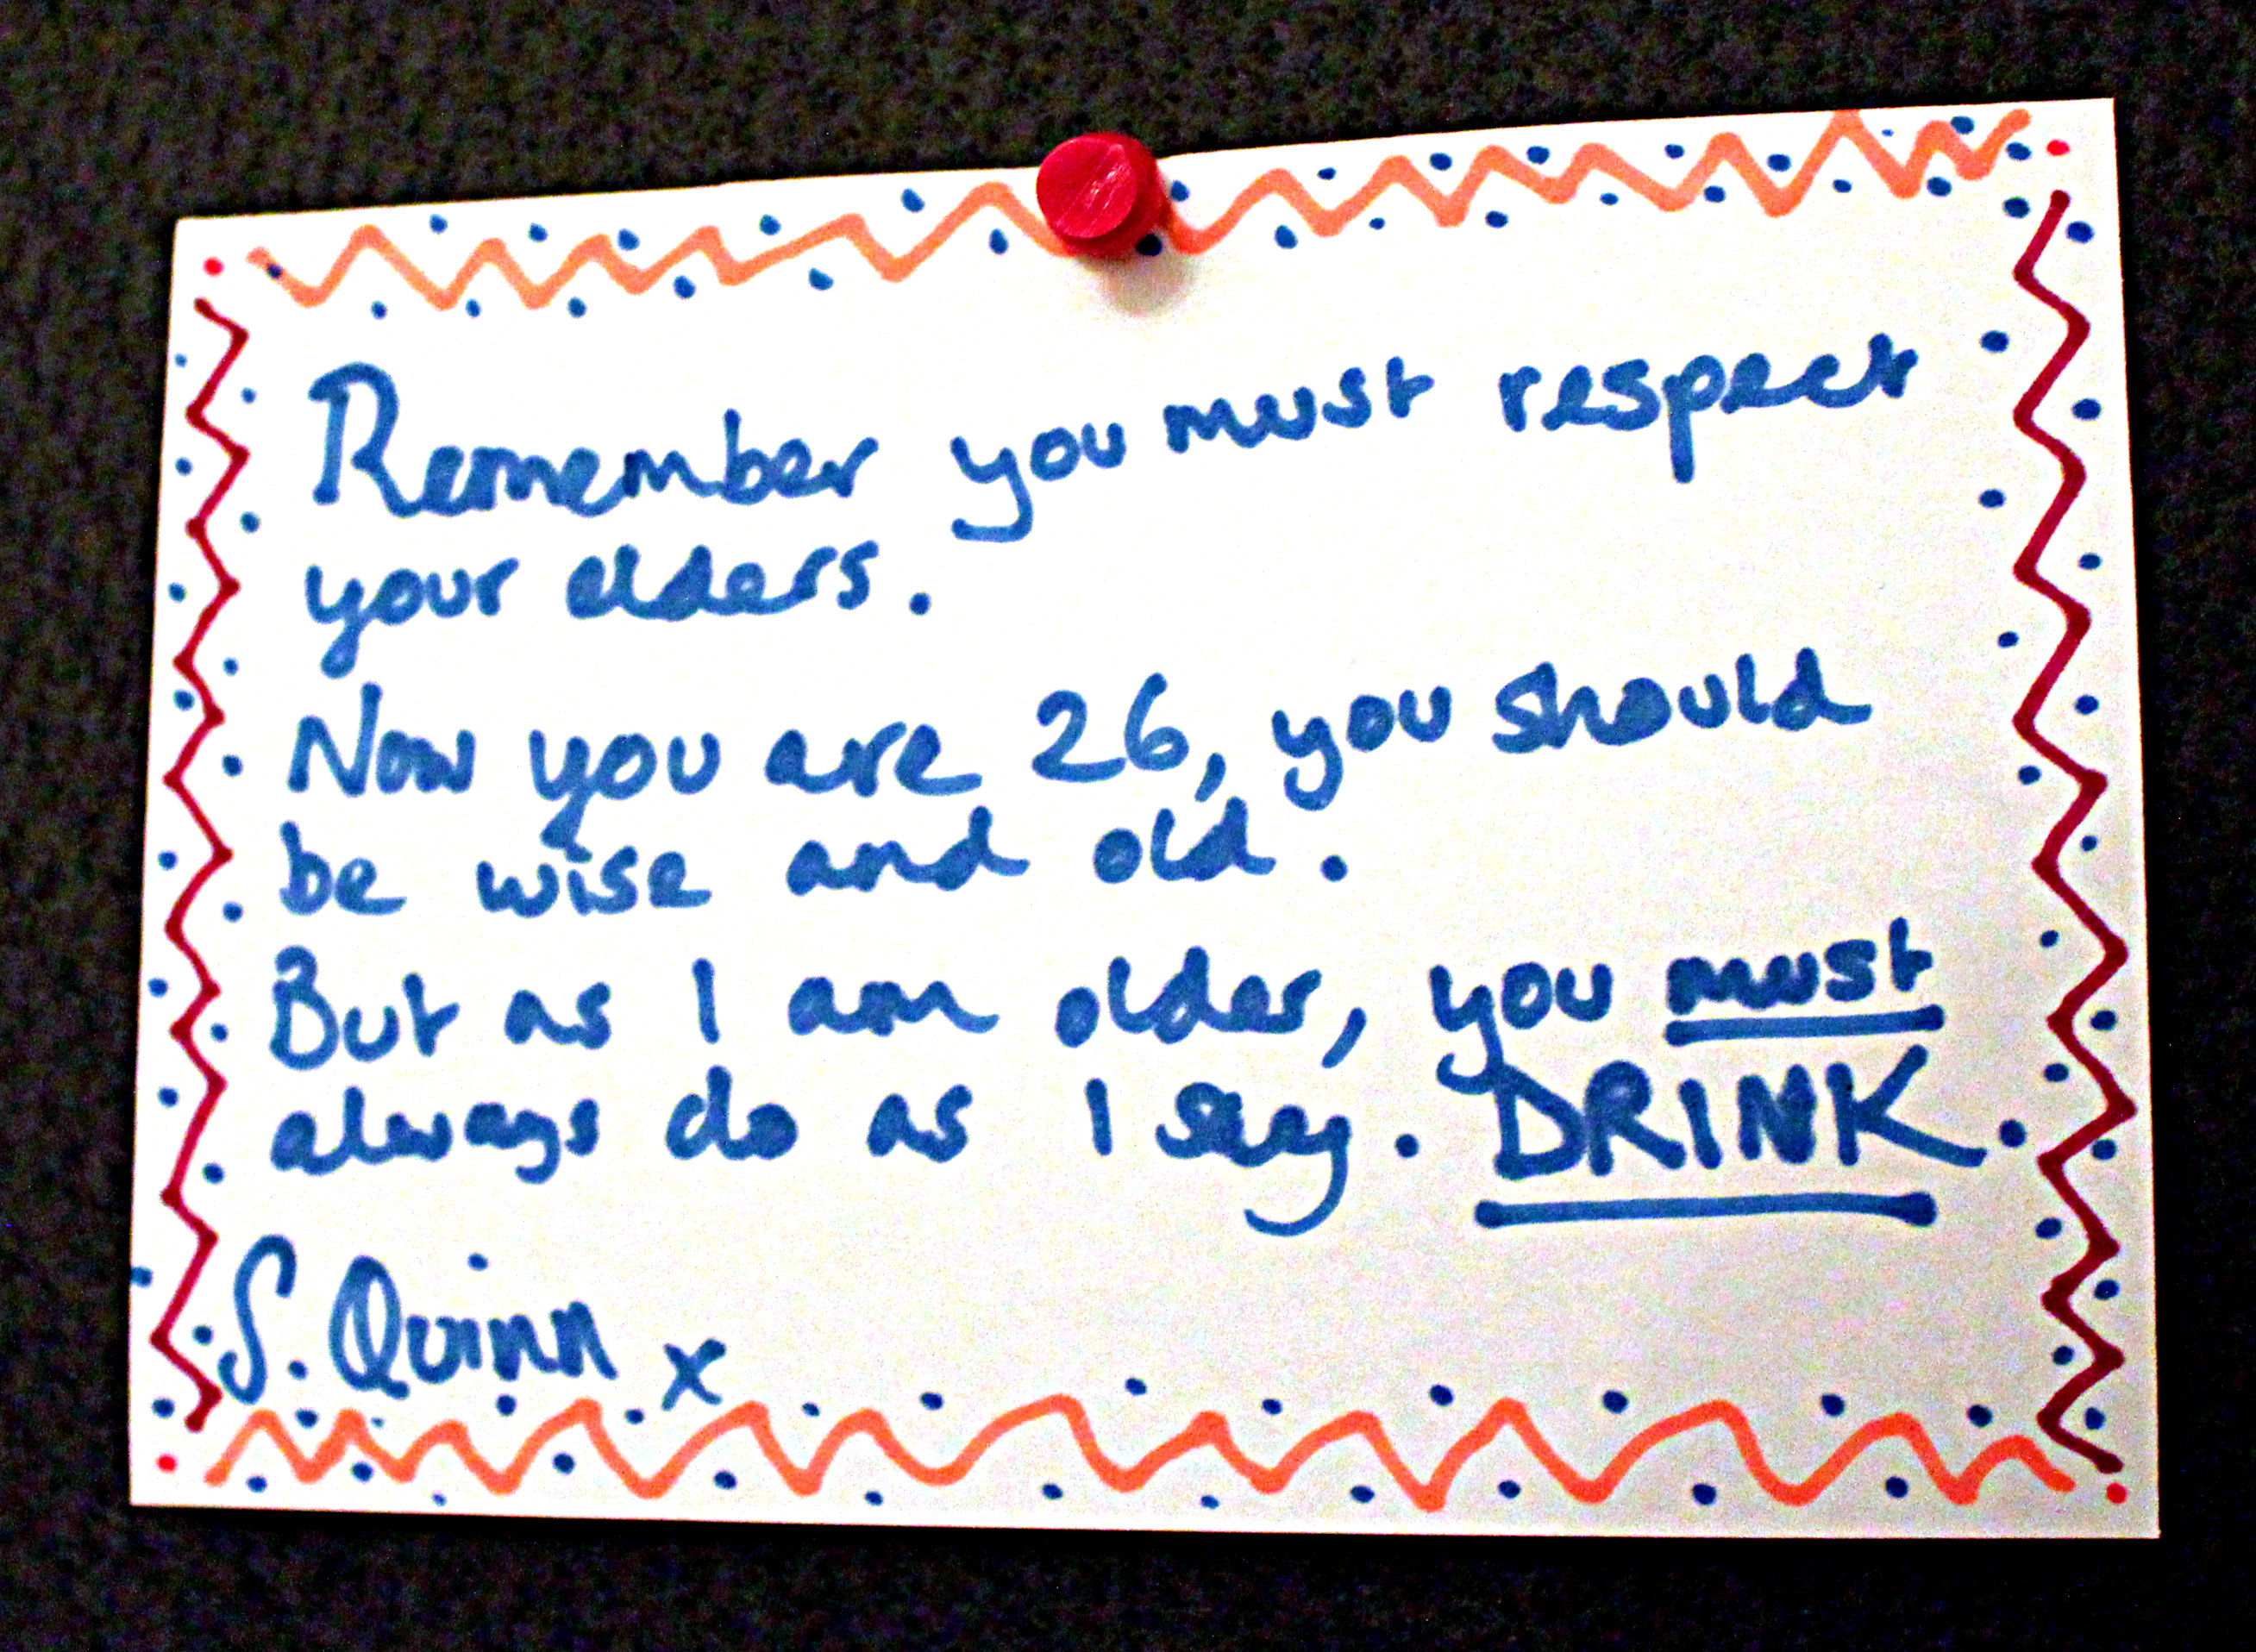 Remember you must respect
your elders.
Now you are 26, you should
be wise and old.
But as I am older, you must
always do as I say. DRINK
S. Quinn x